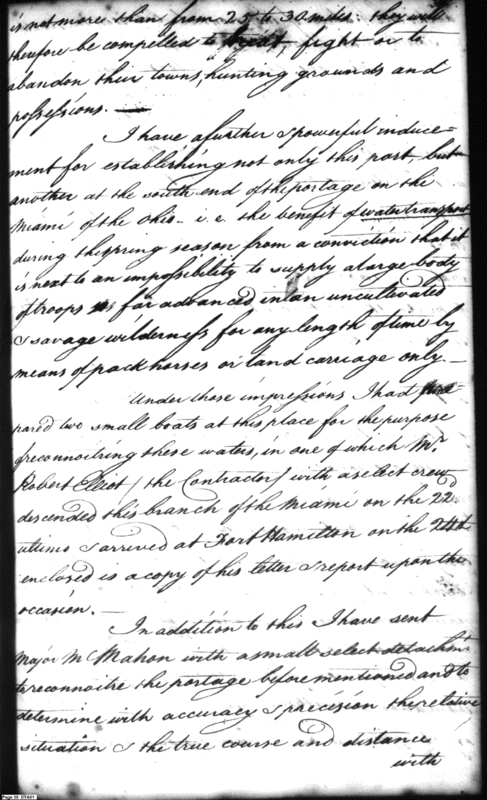 is not more than from 25 to 30 miles: they will
therefore be compelled to treat, fight or to
abandon their towns, hunting grounds and
possessions. —
I have a further & powerful induce=
ment for establishing not only this post but
another at the south end of the portage on the
Miami of the Ohio — i. e. the benefit of water transport
during the spring season from a conviction that it
is next to an impossibility to supply a large body
of troops so far advanced in an uncultivated
& savage wilderness for any length of time by
means of pack horses or land carriage only —
Under those impressions I had pre=
pared two small boats at this place for the purpose
of reconnoitring these waters, in one of which Mr.
Robert Elliot / the Contractor / with a select crew
descended this branch of the Miami on the 22d.
ultimo & arrived at Fort Hamilton on the
enclosed is a copy of his letter & report upon the
occasion. —
In addition to this I have sent
Major Mc Mahon with a small select detachmt.
to reconnoitre the portage before mentioned and to
determine with accuracy & precision the relative
situation & the true course and distance
with